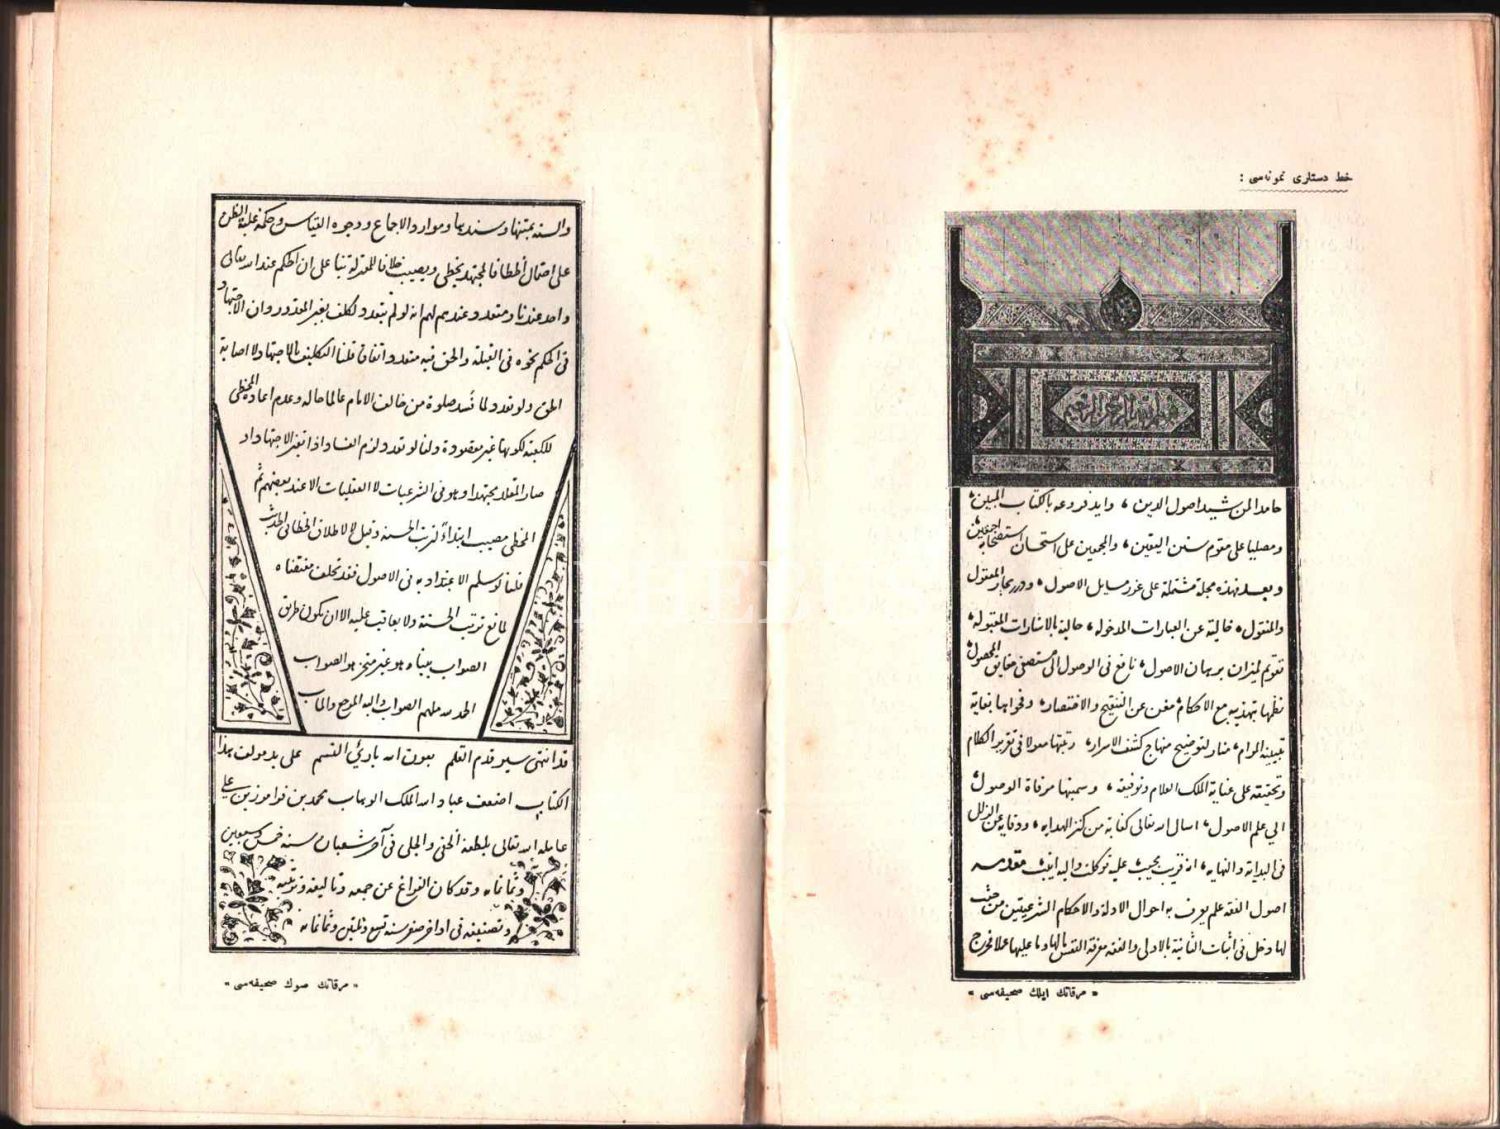 خط دستاری نمونه‌سی :
بسم الله الرحمن الرحيم
حامدا لمن شيد اصول الدين، وايد فروعه بالكتاب المبين،
ومصليا على مقوم سنن اليقين، والمجمعين على استحسان استصحابه اجمعين
وبعد فهذه مجلة مشتملة على غرر مسايل الاصول، ودرر بحار المعقول
والمنقول، خالية عن العبارات المدخوله، حالية بالاشارات المقبوله،
تقويم لميزان برهان الاصول، نافع في الوصول الى مستصفى حقايق المحصول،
نظمها بتهذيبه مع الاحكام، مغن عن التنقيح والاختصار، وفحواها بغاية
تبيينه المرام، منار لتوضيح منهاج كشف الاسرار، رتبتها معولا في تقرير الكلام
وتحقيقه على عناية الملك العلام وتوفيقه، وسميتها مرقاة الوصول
الى علم الاصول، اسال الله تعالى كفاية من كنز الهدايه، ووقاية عن الزلل
في البداية والنهايه، انه قريب مجيب، عليه توكلت واليه انيب، مقدمه
اصول الفقه علم يعرف به احوال الادلة والاحكام الشرعيتين من حيث
لها دخل في اثبات الثانية بالاولى والفقه معرفة النفس مالها وما عليها عملا فخرج
« مرقاتك ایلك صحیفه‌سی »
والسنة بمتنها وسندها وموارد الاجماع ووجوه القياس وحكمه غلبة الظن
على احتمال الخطا فالمجتهد يخطئ ويصيب خلافا للمعتزلة بنا على ان الحكم عند الله تعالى
واحد عندنا ومتعدد عندهم لهم انه لو لم يتعدد لكلف بغير المقدور وان الاجتهاد
في الحكم كهو في القبلة والحق فيه متعدد اتفاقا قلنا التكليف بالاجتهاد لا اصابة
الحق ولو تعدد لما فسد صلوة من خالف الامام عالما حاله وعدم اعادة المخطئ
للكعبة لكونها غير مقصودة ولنا لو تعدد لزم الفساد اذا تغير الاجتهاد او
صار المقلد مجتهدا وهو في الشرعيات لا العقليات الا عند بعضهم ثم
المخطئ مصيب ابتداءً لترتب الحسنة وقيل لا لاطلاق الخطا في الحديث
قلنا لو سلم الاعتداد به في الاصول فقد تخلف مقتضاه
لمانع ترتب الحسنة ولا يعاقب عليه الا ان يكون طريق
الصواب بينا
الحمد لله ملهم الصواب واليه المرجع والماب
قد انتهى سير قدم القلم بعون الله بارئ النسم على يد مولف هذا
الكتاب اضعف عباد الله الملك الوهاب محمد بن فرامرز بن علي
عامله الله تعالى بلطفه الخفي والجلي في آخر شعبان سنة خمس وسبعين
وثمانمائه وقد كان الفراغ عن جمعه وتاليفه وترتيبه
وتصنيفه في اواخر صفر سنة تسع وثمانمائه
« مرقاتك صوك صحیفه‌سی »